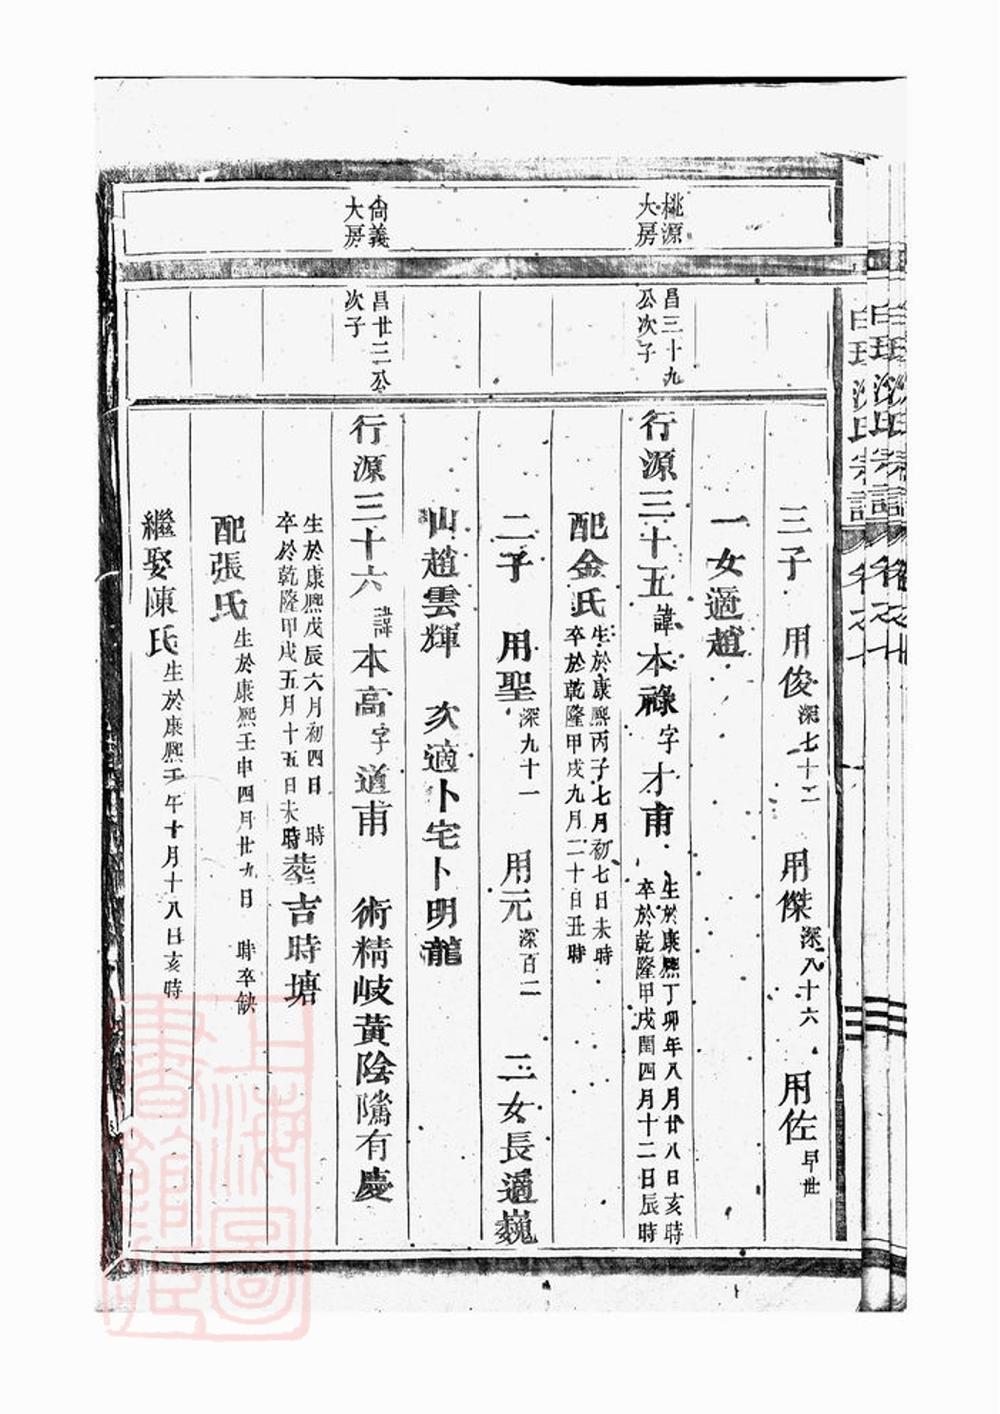 三子 用俊深七十二 用傑深八十六 用佐早世
一女適趙
桃源大房
昌三十九公次子
行源三十五諱本祿字才甫 生於康熙丁卯年八月廿八日亥時
卒於乾隆甲戌閏四月十二日辰時
配金氏 生於康熙丙子七月初七日未時
卒於乾隆甲戌九月二十日丑時
二子 用聖深九十一 用元深百二 二女長適巍
山趙雲輝 次適卜宅卜明龍
尙義大房
昌廿三公次子
行源三十六諱本高字道甫 術精岐黃陰隲有慶
生於康熙戊辰六月初四日 時
卒於乾隆甲戌五月十五日未時 塟吉時塘
配張氏 生於康熙壬申四月廿九日 時卒缺
繼娶陳氏 生於康熙壬午十月十八日亥時
上海圖書館藏